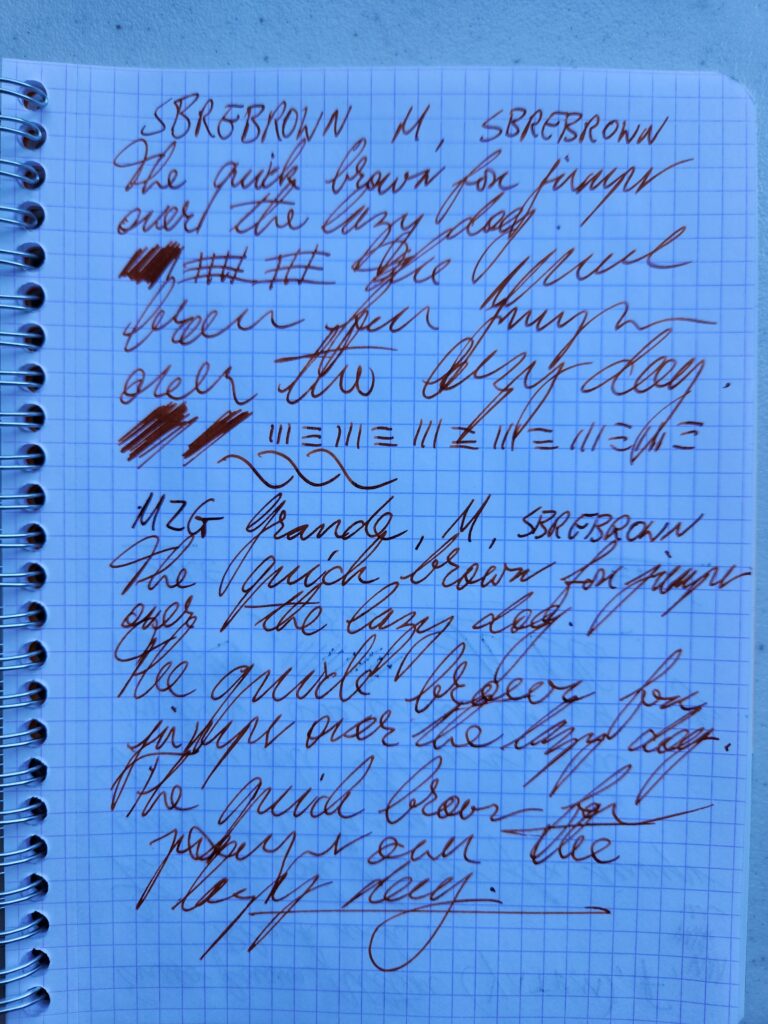 SBREBROWN M, SBREBROWN
The quick brown fox jumps
over the lazy dog.
the quick
brown fox jumps
over the lazy dog.
MZG Grande, M, SBREBROWN
The quick brown fox jumps
over the lazy dog.
The quick brown fox
jumps over the lazy dog.
The quick brown fox
jumps over the
lazy dog.